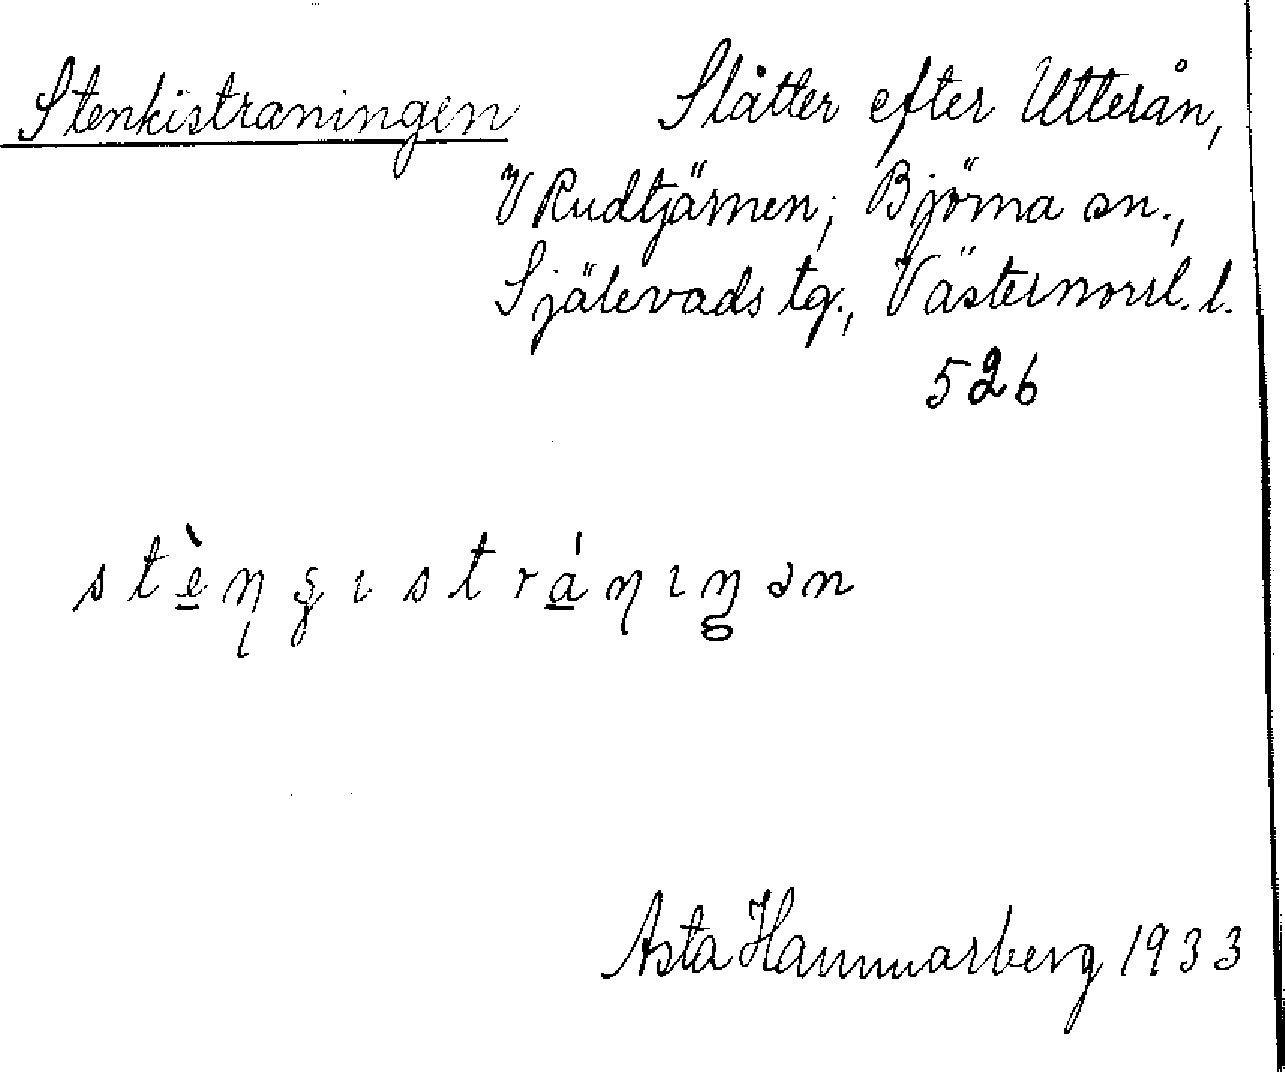 Stenkistraningen
Slåtter efter Utterån,
V Rudtjärnen, Björna sn.,
Själevads tg., Västernorrl. l.
526
Asta Hammarberg 1933